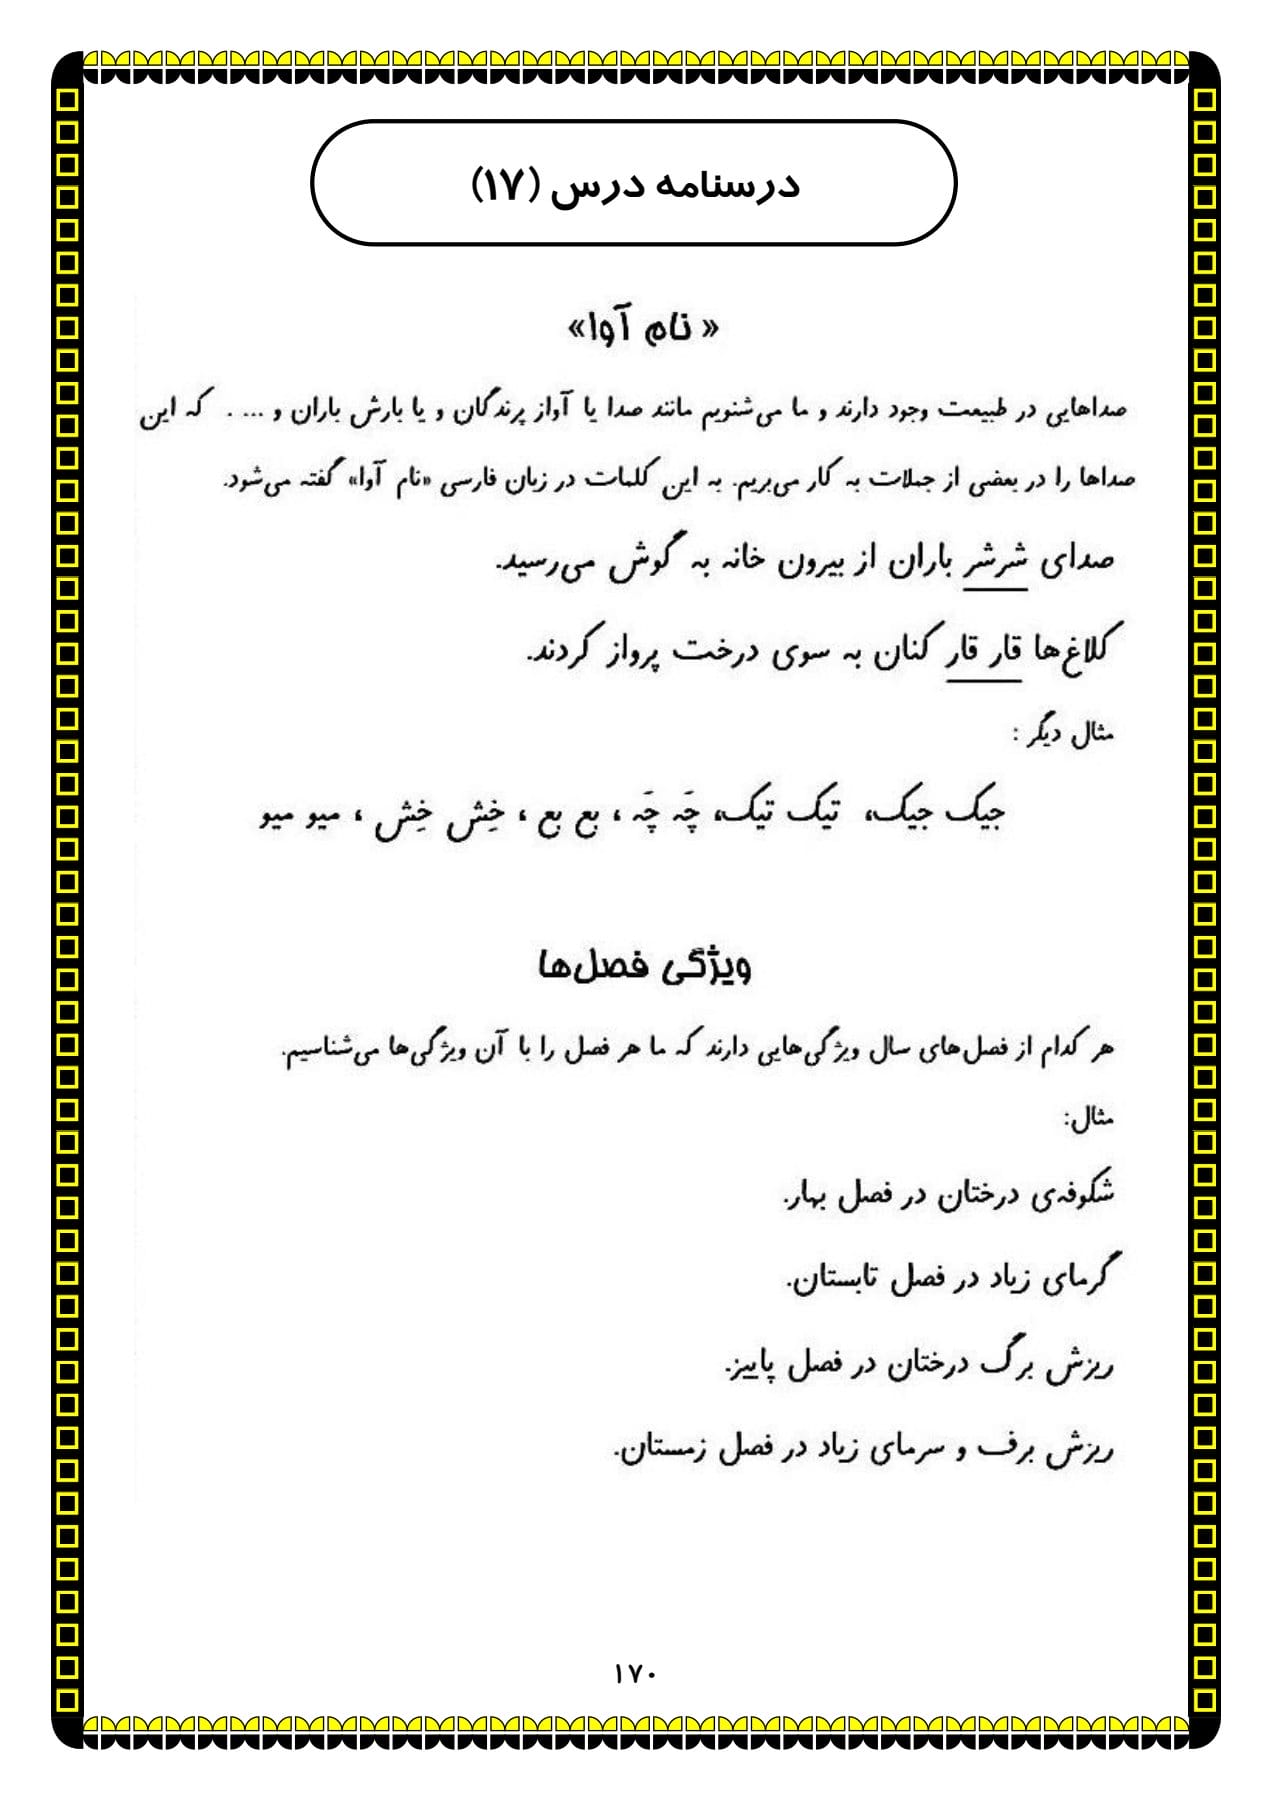 درسنامه درس (۱۷)
« نام آوا»
صداهایی در طبیعت وجود دارند و ما می‌شنویم مانند صدا یا آواز پرندگان و یا بارش باران و ... . که این
صداها را در بعضی از جملات به کار می‌بریم. به این کلمات در زبان فارسی «نام آوا» گفته می‌شود.
صدای شرشر باران از بیرون خانه به گوش می‌رسید.
کلاغ‌ها قار قار کنان به سوی درخت پرواز کردند.
مثال دیگر :
جیک جیک، تیک تیک، چَه چَه ، بع بع ، خِش خِش ، میو میو
ویژگی فصل‌ها
هر کدام از فصل‌های سال ویژگی‌هایی دارند که ما هر فصل را با آن ویژگی‌ها می‌شناسیم.
مثال:
شکوفه‌ی درختان در فصل بهار.
گرمای زیاد در فصل تابستان.
ریزش برگ درختان در فصل پاییز.
ریزش برف و سرمای زیاد در فصل زمستان.
۱۷۰